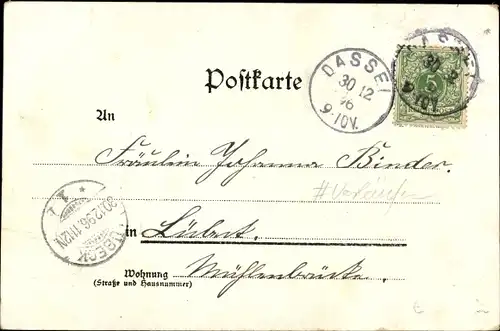 DASSEL
30 12
96
9-10V.
DASSEL
30 12
9-10V.
5
Postkarte
An
Fräulein Johanna Binder.
LÜBECK
30.12.96. 11-12N.
in Lübeck.
Wohnung Mühlenbrücke.
(Straße und Hausnummer)